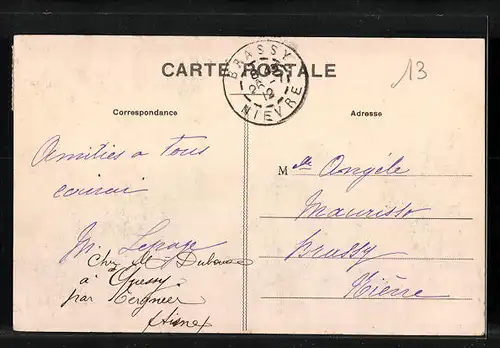 CARTE POSTALE
BRASSY
NIEVRE
13
Correspondance
Adresse
Amitiés a tous
M. Lepage
Chez M Dubouse
à Quessy
par Tergnier
(Aisne)
Mlle Angèle
Brassy
Nièvre